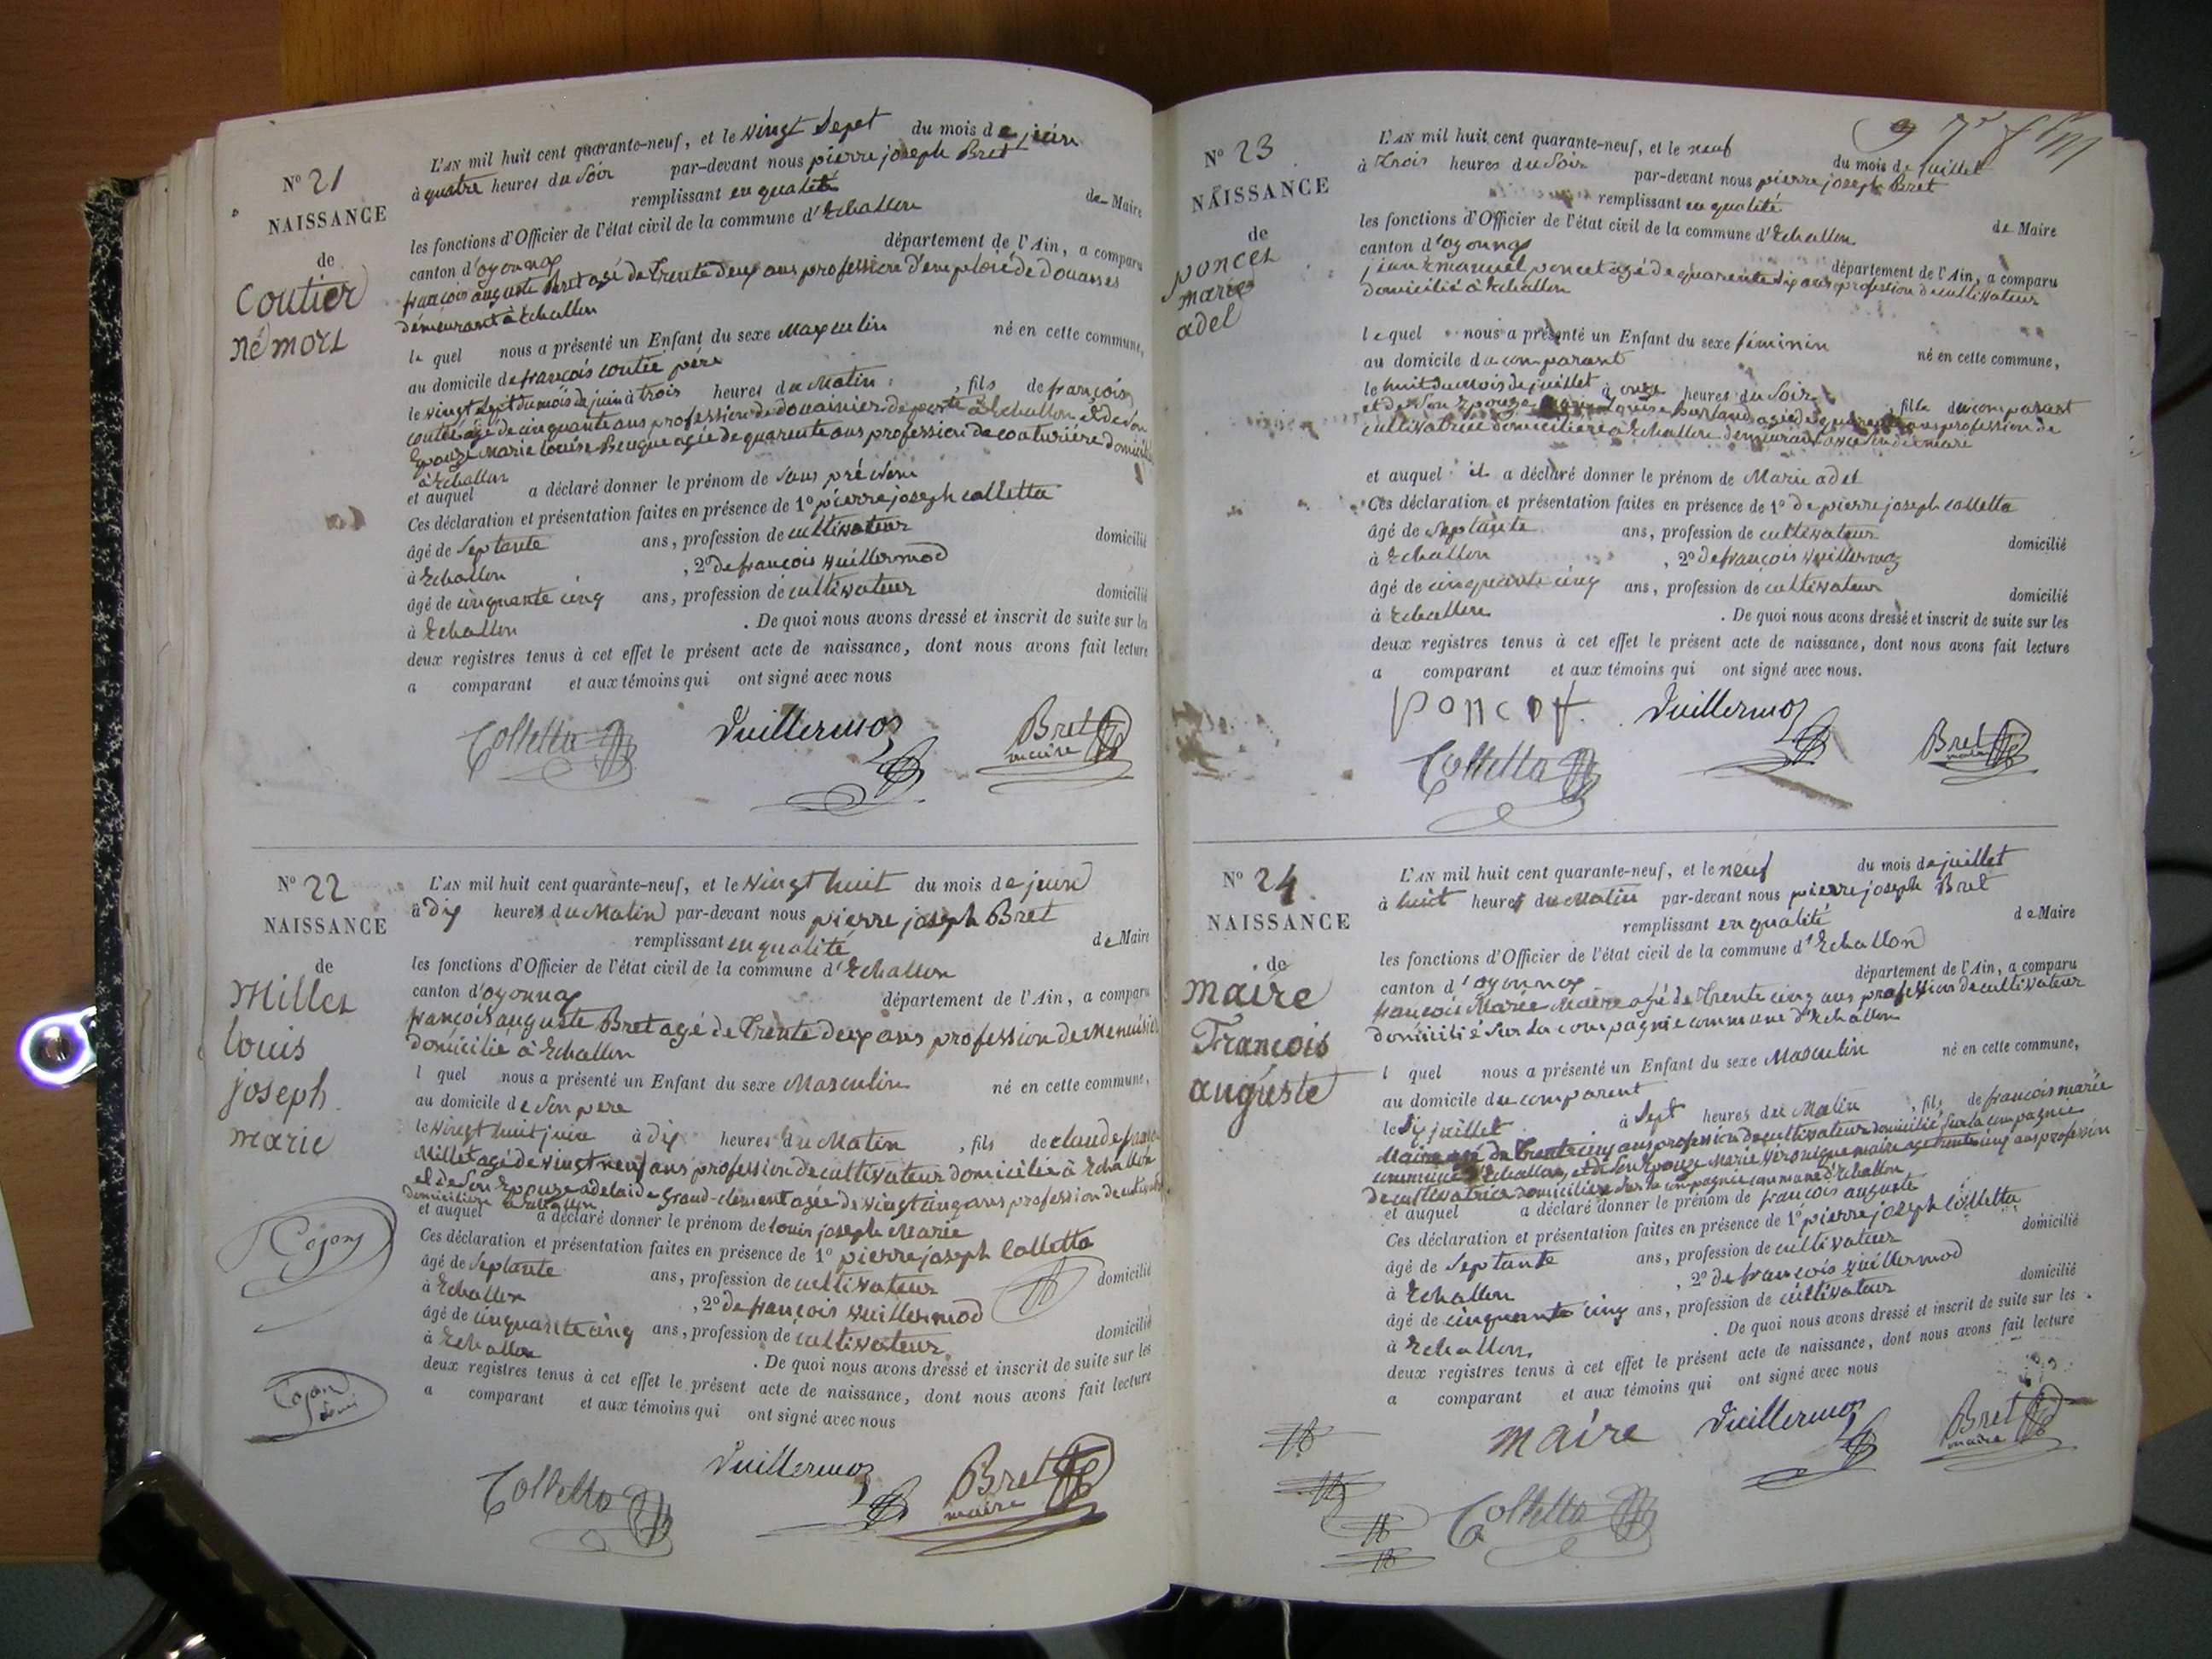 N° 21
NAISSANCE
de
Coutier
né mort
L'AN mil huit cent quarante-neuf, et le vingt Sepet du mois de juin
à quatre heures du Soir par-devant nous pierre joseph Bret
remplissant en qualité de Maire
les fonctions d'Officier de l'état civil de la commune d'Echallon
canton d'oyonnax département de l'Ain, a comparu
françois auguste Bret agé de trente deux ans profession d'emploié de Douannes
démeurant à Echallon
le quel nous a présenté un Enfant du sexe Masculin né en cette commune,
au domicile de françois coutié père
le vingt Sept du mois de juin à trois heures du Matin, fils de françois
coutié agé de cinquante ans profession de douainier de poste à Echallon et de son
Epouze Marie louise Beuque agée de quarente ans profession de couturière domicilié
à Echallon
et auquel a déclaré donner le prénom de Sans préséni
Ces déclaration et présentation faites en présence de 1° pierre joseph colletta
âgé de Septante ans, profession de cultivateur domicilié
à Echallon , 2° de françois vuillermod
âgé de cinquante cinq ans, profession de cultivateur domicilié
à Echallon . De quoi nous avons dressé et inscrit de suite sur les
deux registres tenus à cet effet le présent acte de naissance, dont nous avons fait lecture
a comparant et aux témoins qui ont signé avec nous
Colletta Vuillermoz Bret
maire
N° 22
NAISSANCE
de
Millet
louis
joseph
marie
L'AN mil huit cent quarante-neuf, et le vingt huit du mois de juin
à dix heures du Matin par-devant nous pierre joseph Bret
remplissant en qualité de Maire
les fonctions d'Officier de l'état civil de la commune d'Echallon
canton d'oyonnax département de l'Ain, a comparu
françois auguste Bret agé de trente deux ans profession de Menuisier
domicilié à Echallon
l quel nous a présenté un Enfant du sexe Masculin né en cette commune,
au domicile de Son père
le vingt huit juin à dix heures du Matin , fils de claude
Millet agé de vingt neuf ans profession de cultivateur domicilié à Echallon
et de Son Epouze adelaide Grand-clément agée de vingt cinq ans profession de
domiciliére à Echallon
et auquel a déclaré donner le prénom de louis joseph Marie
Ces déclaration et présentation faites en présence de 1° pierre joseph Colletta
âgé de Septante ans, profession de cultivateur domicilié
à Echallon , 2° de françois vuillermod
âgé de cinquante cinq ans, profession de cultivateur domicilié
à Echallon . De quoi nous avons dressé et inscrit de suite sur les
deux registres tenus à cet effet le présent acte de naissance, dont nous avons fait lecture
a comparant et aux témoins qui ont signé avec nous
Colletta Vuillermoz Bret
maire
N° 23
NAISSANCE
de
poncet
marie
adel
L'AN mil huit cent quarante-neuf, et le neuf du mois de juillet
à trois heures du Soir par-devant nous pierre joseph Bret
remplissant en qualité de Maire
les fonctions d'Officier de l'état civil de la commune d'Echallon
canton d'oyonnax département de l'Ain, a comparu
jean Emanuel poncet agé de quarente Six ans profession de cultivateur
domicilié à Echallon
lequel nous a présenté un Enfant du sexe féminin né en cette commune,
au domicile du comparant
le huit du Mois de juillet à onze heures du Soir , fille du comparant
et de Son Epouze Burland agée de ans profession de
cultivatrice domiciliere à Echallon demeurant avec Son mari
et auquel il a déclaré donner le prénom de Marie adel
Ces déclaration et présentation faites en présence de 1° de pierre joseph colletta
âgé de Septante ans, profession de cultivateur domicilié
à Echallon , 2° de françois vuillermoz
âgé de cinquante cinq ans, profession de cultivateur domicilié
à Echallon . De quoi nous avons dressé et inscrit de suite sur les
deux registres tenus à cet effet le présent acte de naissance, dont nous avons fait lecture
a comparant et aux témoins qui ont signé avec nous.
poncet Vuillermoz
Colletta Bret
maire
N° 24
NAISSANCE
de
maire
François
auguste
L'AN mil huit cent quarante-neuf, et le neuf du mois de juillet
à huit heures du Matin par-devant nous pierre joseph Bret
remplissant en qualité de Maire
les fonctions d'Officier de l'état civil de la commune d'Echallon
canton d'oyonnax département de l'Ain, a comparu
françois Marie Maire agé de trente cinq ans profession de cultivateur
domicilié Sur la compagnie commune d'Echallon
l quel nous a présenté un Enfant du sexe Masculin né en cette commune,
au domicile du comparent
le Six juillet à Sept heures du Matin , fils de françois marie
Maire agé de trente cinq ans profession de cultivateur domicilié Sur la compagnie
commune d'Echallon, et de Son Epouze Marie Véronique maire agé trente cinq ans profession
de cultivatrice domiciliée Sur la compagnie commune d'Echallon
et auquel a déclaré donner le prénom de françois auguste
Ces déclaration et présentation faites en présence de 1° pierre joseph Colletta
âgé de Septante ans, profession de cultivateur domicilié
à Echallon , 2° de françois vuillermod
âgé de cinquante cinq ans, profession de cultivateur domicilié
à Echallon . De quoi nous avons dressé et inscrit de suite sur les
deux registres tenus à cet effet le présent acte de naissance, dont nous avons fait lecture
a comparant et aux témoins qui ont signé avec nous
maire Vuillermoz Bret
maire
Colletta